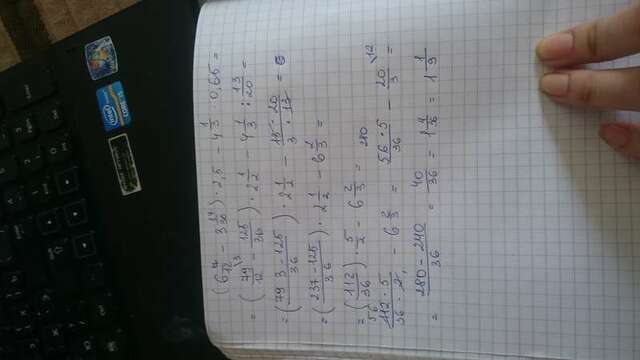 (6 7/12 − 3 17/36) · 2,5 − 4 1/3 : 0,65 =
= (79/12 − 125/36) · 2 1/2 − 4 1/3 : 13/20 =
= (79 · 3 − 125 / 36) · 2 1/2 − 13 · 20 / 3 · 13 =
= (237 − 125 / 36) · 2 1/2 − 6 2/3 =
= (112/36) · 5/2 − 6 2/3 =
112 · 5 / 36 · 2 − 6 2/3 = 56 · 5 / 36 − 20/3 =
= 280 − 240 / 36 = 40/36 = 1 4/36 = 1 1/9
intel